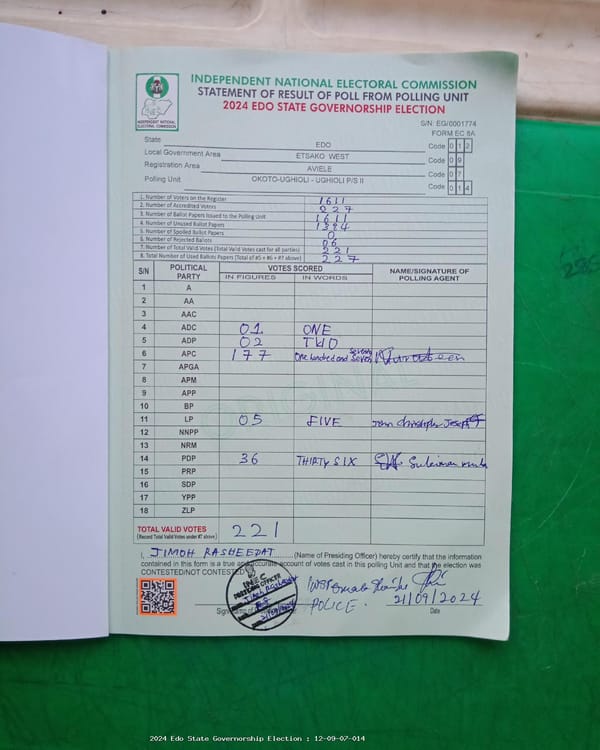 INDEPENDENT NATIONAL ELECTORAL COMMISSION
STATEMENT OF RESULT OF POLL FROM POLLING UNIT
2024 EDO STATE GOVERNORSHIP ELECTION
INDEPENDENT NATIONAL ELECTORAL COMMISSION
S/N: EG/0001774
FORM EC 8A
State EDO Code 012
Local Government Area ETSAKO WEST Code 09
Registration Area AVIELE Code 07
Polling Unit OKOTO-UGHIOLI - UGHIOLI P/S II Code 014
1. Number of Voters on the Register 1611
2. Number of Accredited Voters 227
3. Number of Ballot Papers Issued to the Polling Unit 1611
4. Number of Unused Ballot Papers 1384
5. Number of Spoiled Ballot Papers 0
6. Number of Rejected Ballots 06
7. Number of Total Valid Votes (Total Valid Votes cast for all parties) 221
8. Total Number of Used Ballots Papers (Total of #5 + #6 + #7 above) 227
S/N POLITICAL PARTY VOTES SCORED NAME/SIGNATURE OF POLLING AGENT
IN FIGURES IN WORDS
1 A
2 AA
3 AAC
4 ADC 01 ONE
5 ADP 02 TWO
6 APC 177 One hundred and Seventy Seven
7 APGA
8 APM
9 APP
10 BP
11 LP 05 FIVE John Christopher Joseph
12 NNPP
13 NRM
14 PDP 36 THIRTY SIX Suleiman
15 PRP
16 SDP
17 YPP
18 ZLP
TOTAL VALID VOTES 221
(Record Total Valid Votes under #7 above)
I, JIMOH RASHEEDAT (Name of Presiding Officer) hereby certify that the information
contained in this form is a true and accurate account of votes cast in this polling Unit and that the election was
CONTESTED/NOT CONTESTED
INEC
PRESIDING OFFICER
POLICE. 21/09/2024
Date
2024 Edo State Governorship Election : 12-09-07-014